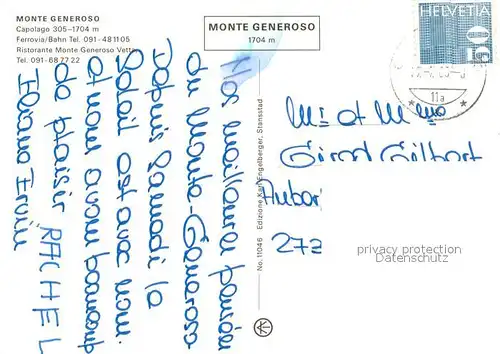 MONTE GENEROSO
Capolago 305–1704 m
Ferrovia/Bahn Tel. 091-481105
Ristorante Monte Generoso Vetta
Tel. 091-687722
MONTE GENEROSO
1704 m
HELVETIA
50
11a
Nos meilleures pensées
du Monte-Generoso
Depuis samedi le
Soleil est avec nous
et nous avons beaucoup
de plaisir RACHEL
Edizione Karl Engelberger, Stansstad
No. 11046
M et Mme
Girod Gilbert
272
privacy protection
Datenschutz